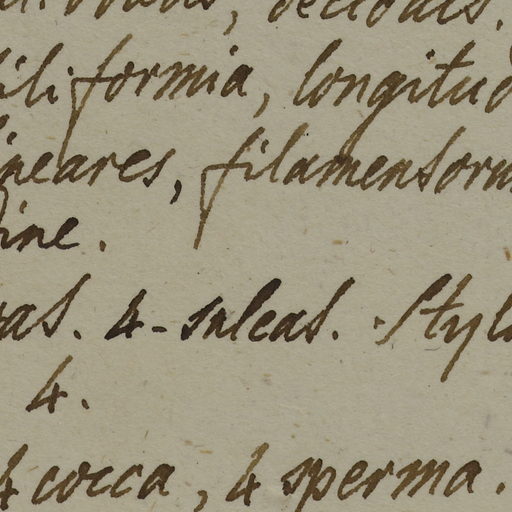 filiformia, longitud
lineares, filamentorum
dine.
vas. 4-sulcas. Styl
4.
4 cocca, 4 sperma.